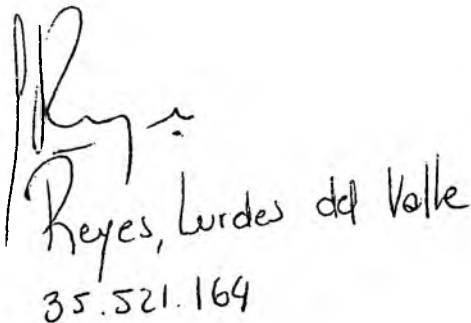 Reyes, Lurdes del Valle
35.521.164